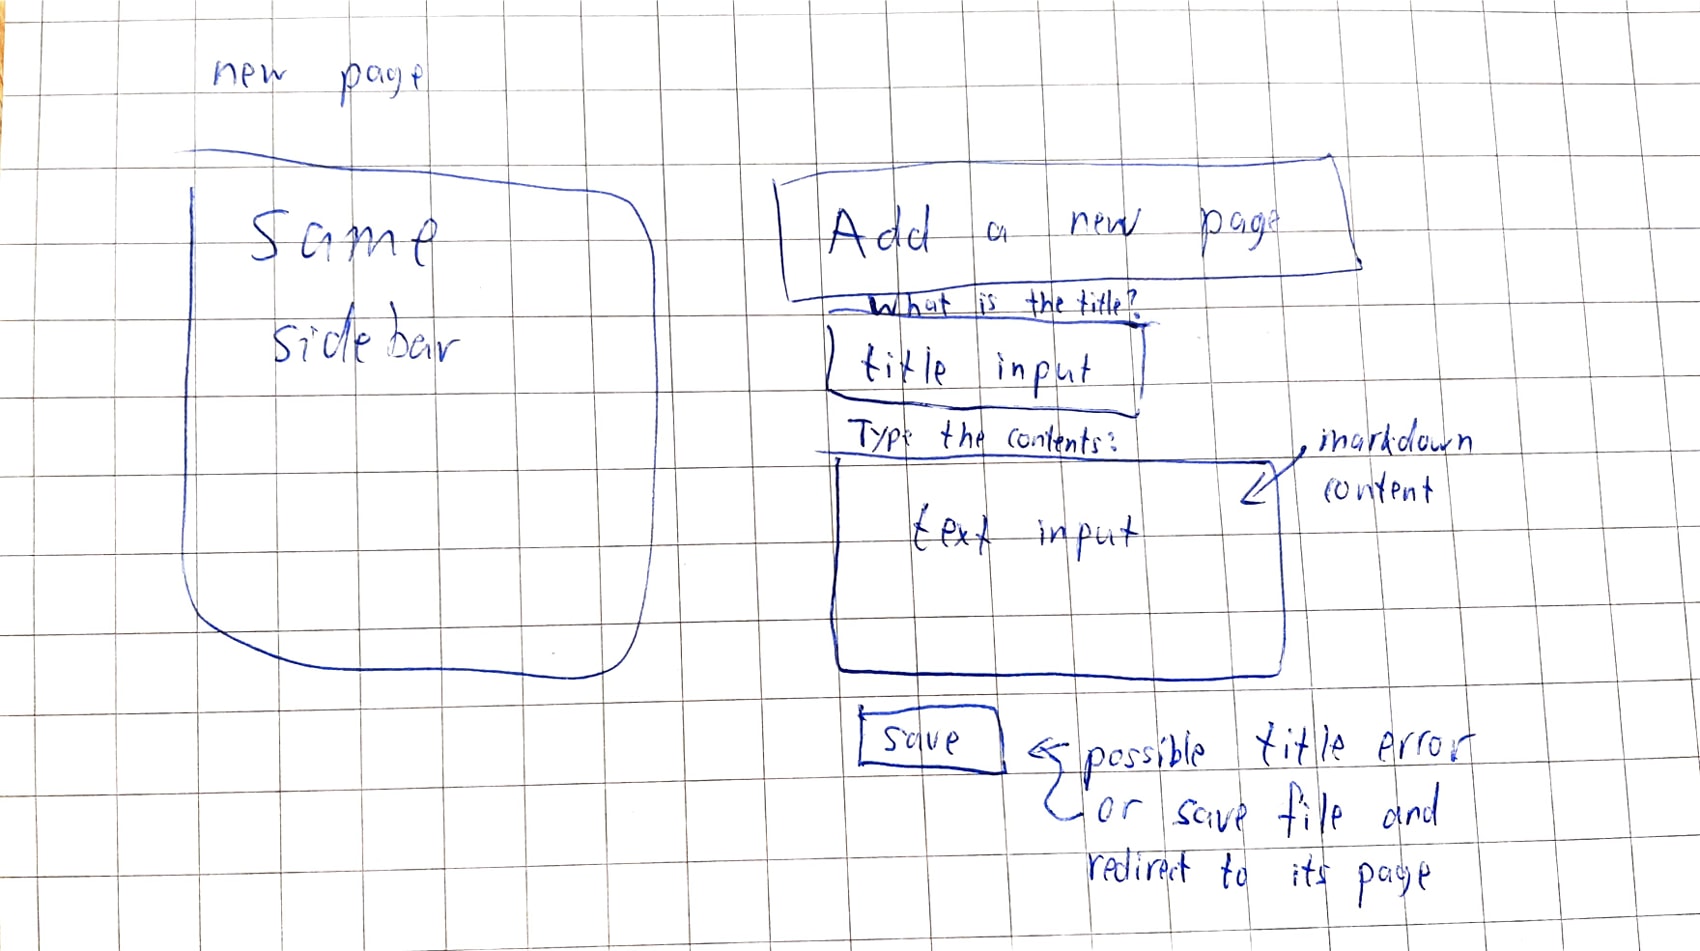 new page
Same
sidebar
Add a new page
What is the title?
title input
Type the contents:
markdown
content
text input
save
possible title error
or save file and
redirect to its page